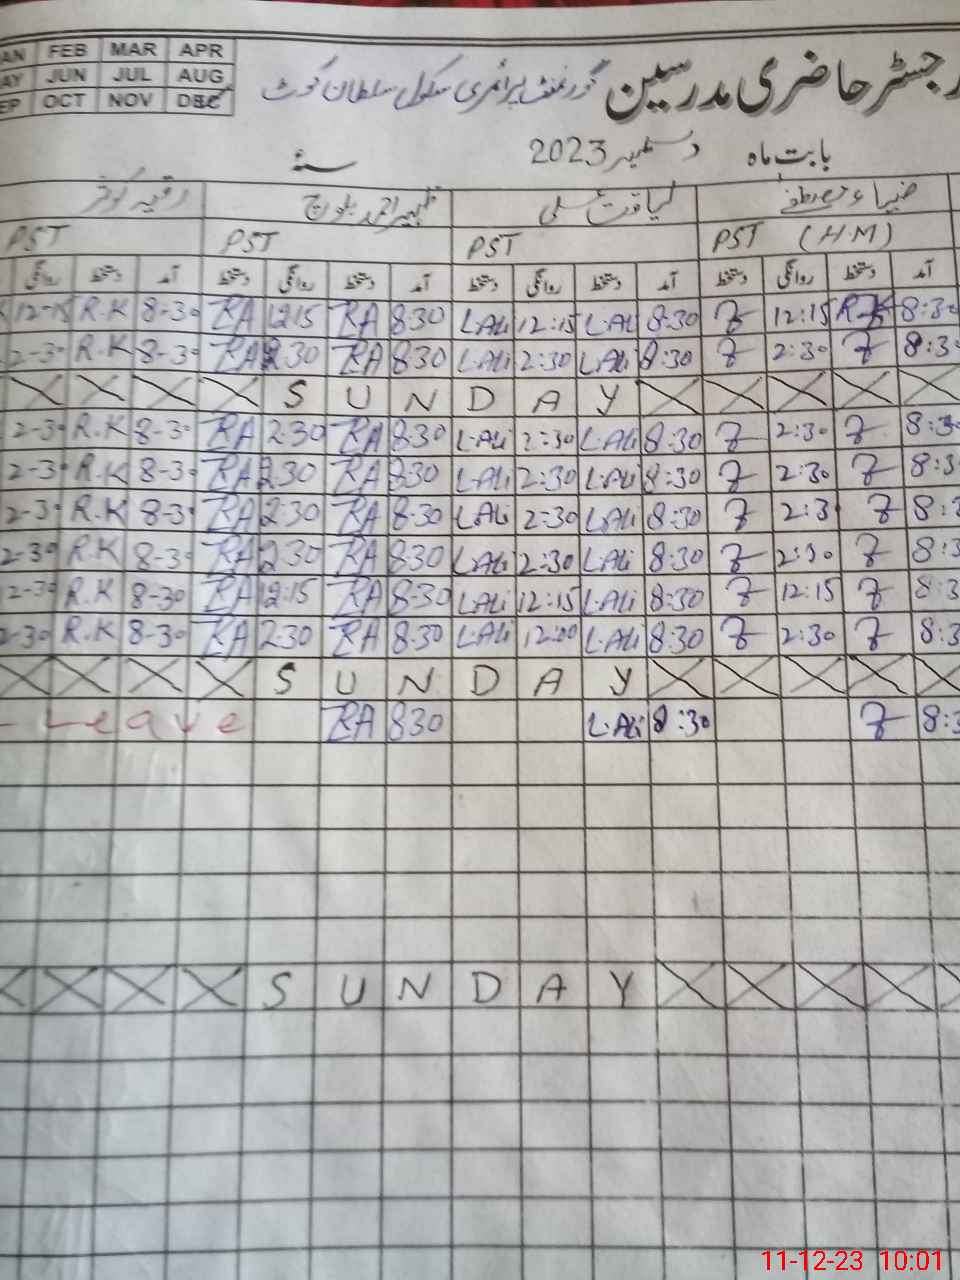 AN FEB MAR APR
AY JUN JUL AUG
EP OCT NOV DEC
رجسٹر حاضری مدرسین گورنمنٹ پرائمری سکول سلطان کوٹ
بابت ماہ دسمبر 2023 سنہ
ضیاء لیاقت علی
PST (H.M) PST PST PST
آمد دستخط روانگی دستخط آمد دستخط روانگی دستخط آمد دستخط روانگی دستخط آمد دستخط روانگی
12-15 R.K 8-30 RA 12:15 RA 8:30 L.Ali 12:15 L.Ali 8:30 Z 12:15 8:30
2-30 R.K 8-30 RA 2:30 RA 8:30 L.Ali 2:30 L.Ali 8:30 Z 2:30 Z 8:30
S U N D A Y
2-30 R.K 8-30 RA 2:30 RA 8:30 L.Ali 2:30 L.Ali 8:30 Z 2:30 Z 8:30
2-30 R.K 8-30 RA 2:30 RA 8:30 L.Ali 2:30 L.Ali 8:30 Z 2:30 Z 8:3
2-30 R.K 8-30 RA 2:30 RA 8:30 L.Ali 2:30 L.Ali 8:30 Z 2:3 Z 8:3
2-30 R.K 8-30 RA 2:30 RA 8:30 L.Ali 2:30 L.Ali 8:30 Z 2:30 Z 8:3
2-30 R.K 8-30 RA 12:15 RA 8:30 L.Ali 12:15 L.Ali 8:30 Z 12:15 Z 8:3
2-30 R.K 8-30 RA 2:30 RA 8:30 L.Ali L.Ali 8:30 Z 2:30 Z 8:3
S U N D A Y
Leave RA 830 L.Ali 8:30 Z 8:3
S U N D A Y
11-12-23 10:01